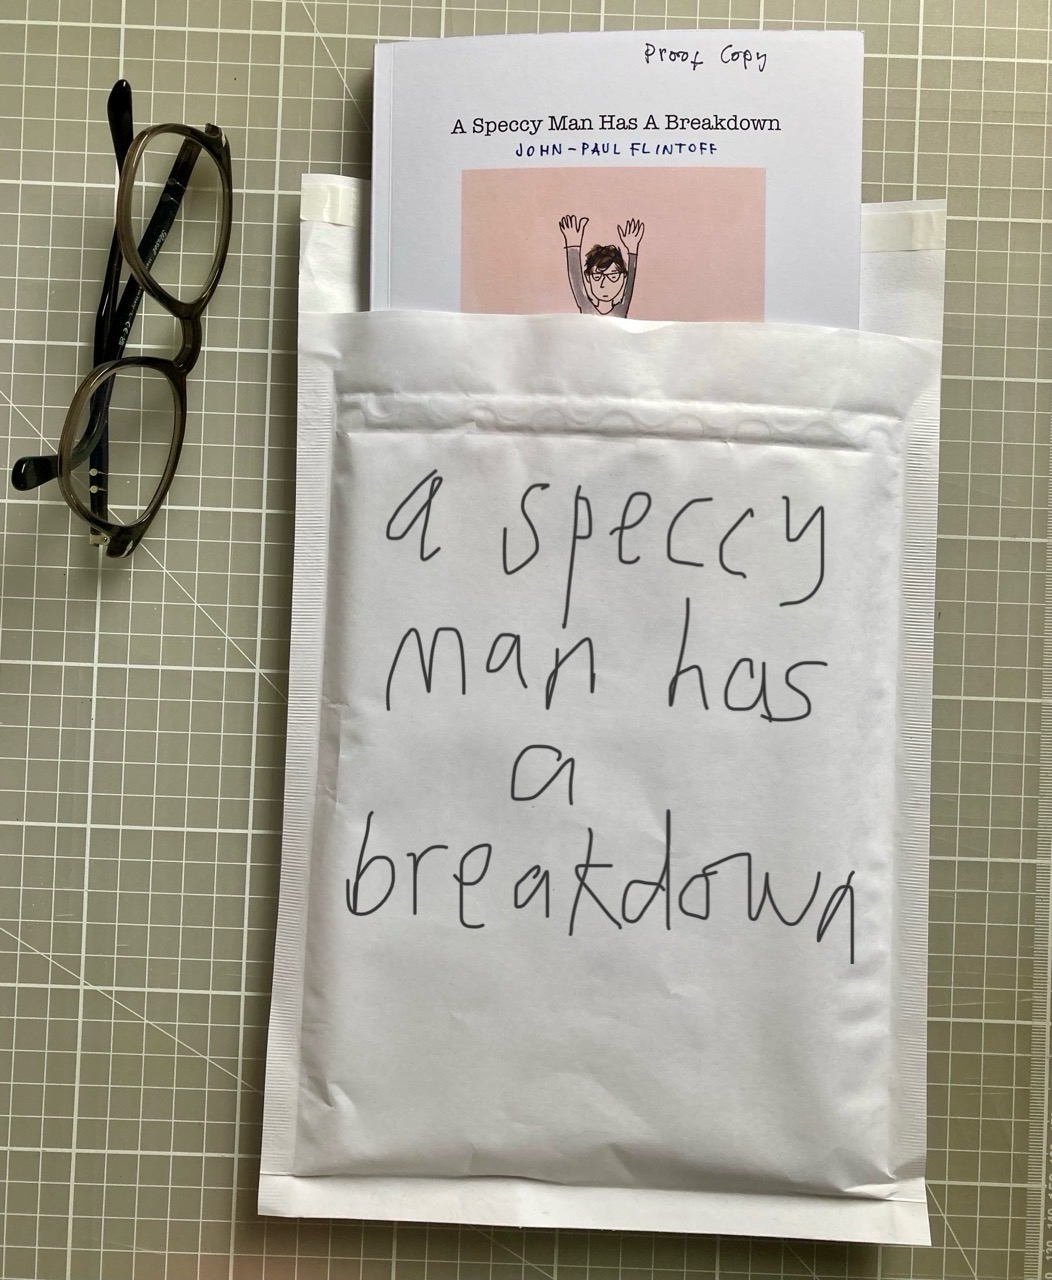 Proof Copy
A Speccy Man Has A Breakdown
JOHN-PAUL FLINTOFF
a speccy
man has
a
breakdown